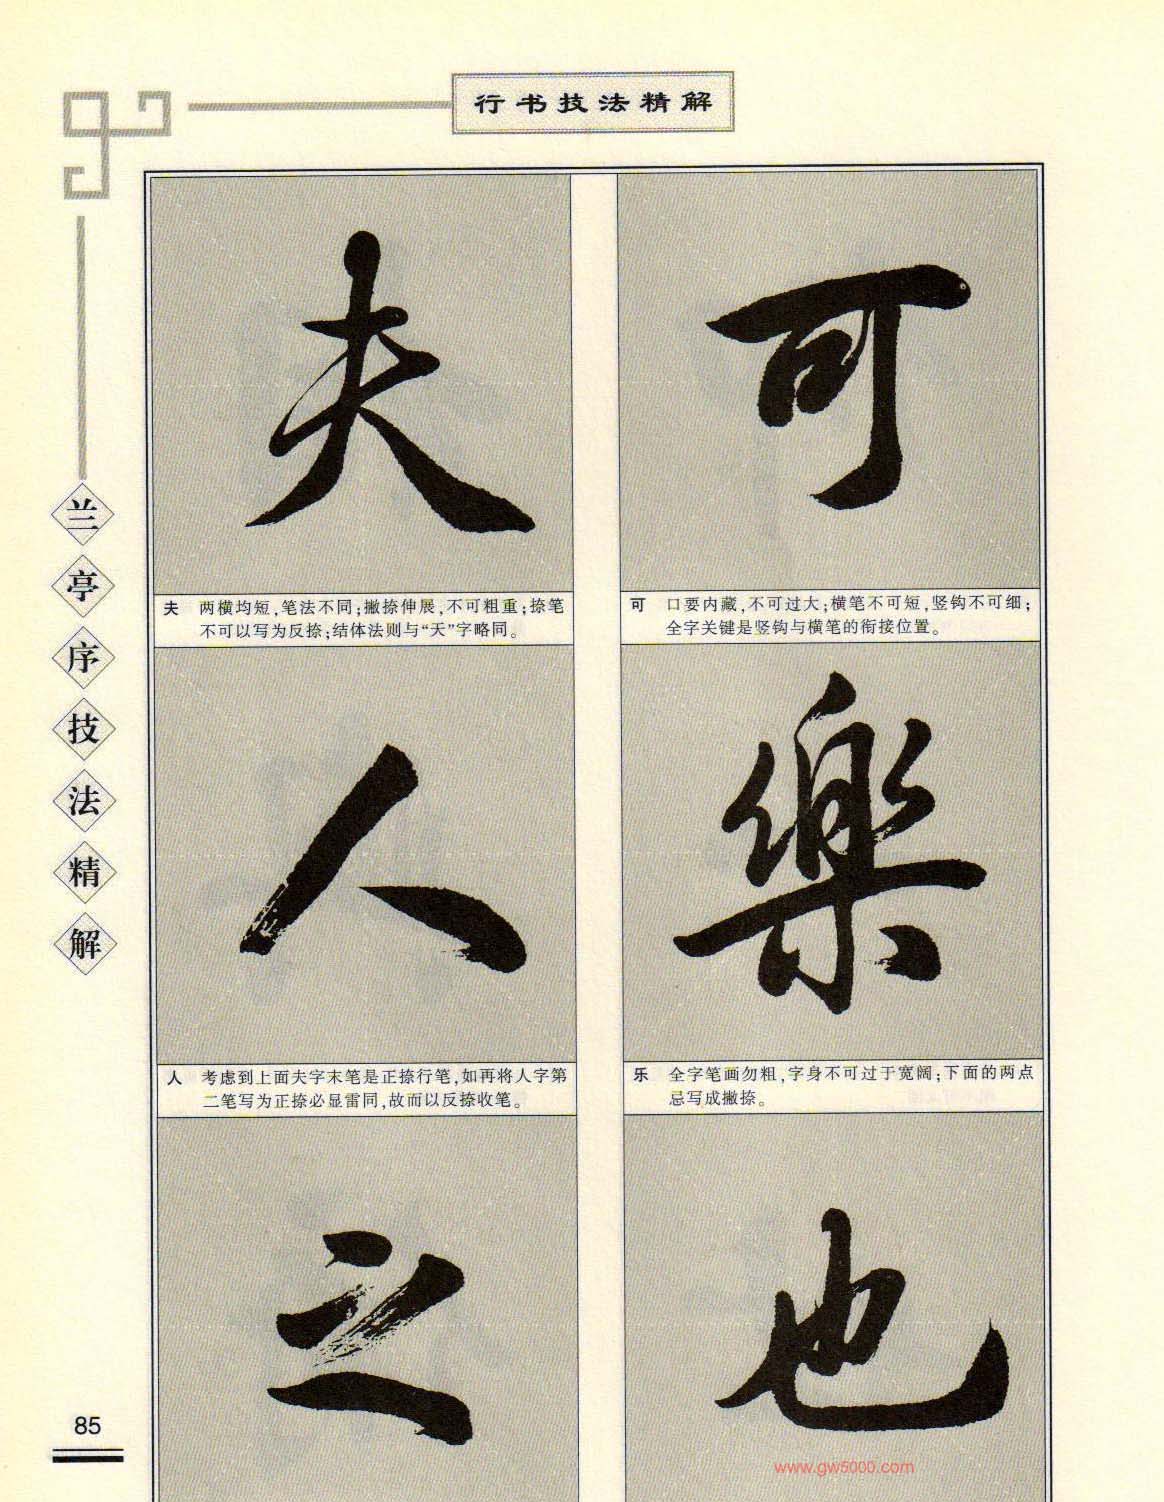 行书技法精解
兰亭序技法精解
可
可 口要内藏,不可过大;横笔不可短,竖钩不可细;
全字关键是竖钩与横笔的衔接位置。
樂
乐 全字笔画勿粗,字身不可过于宽阔;下面的两点
忌写成撇捺。
也
夫
夫 两横均短,笔法不同;撇捺伸展,不可粗重;捺笔
不可以写为反捺;结体法则与“天”字略同。
人
人 考虑到上面夫字末笔是正捺行笔,如再将人字第
二笔写为正捺必显雷同,故而以反捺收笔。
之
85
www.gw5000.com